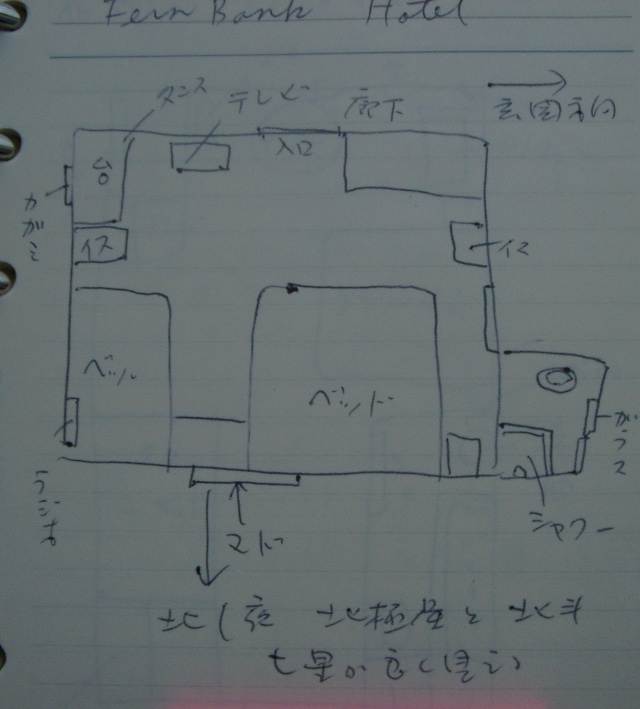 Fern Bank Hotel
タンス
テレビ
廊下
玄関方向
入口
台
カガミ
イス
イス
ベッド
ベッド
ラジオ
ガラス
シャワー
マド
北(夜 北極星と北斗
七星が